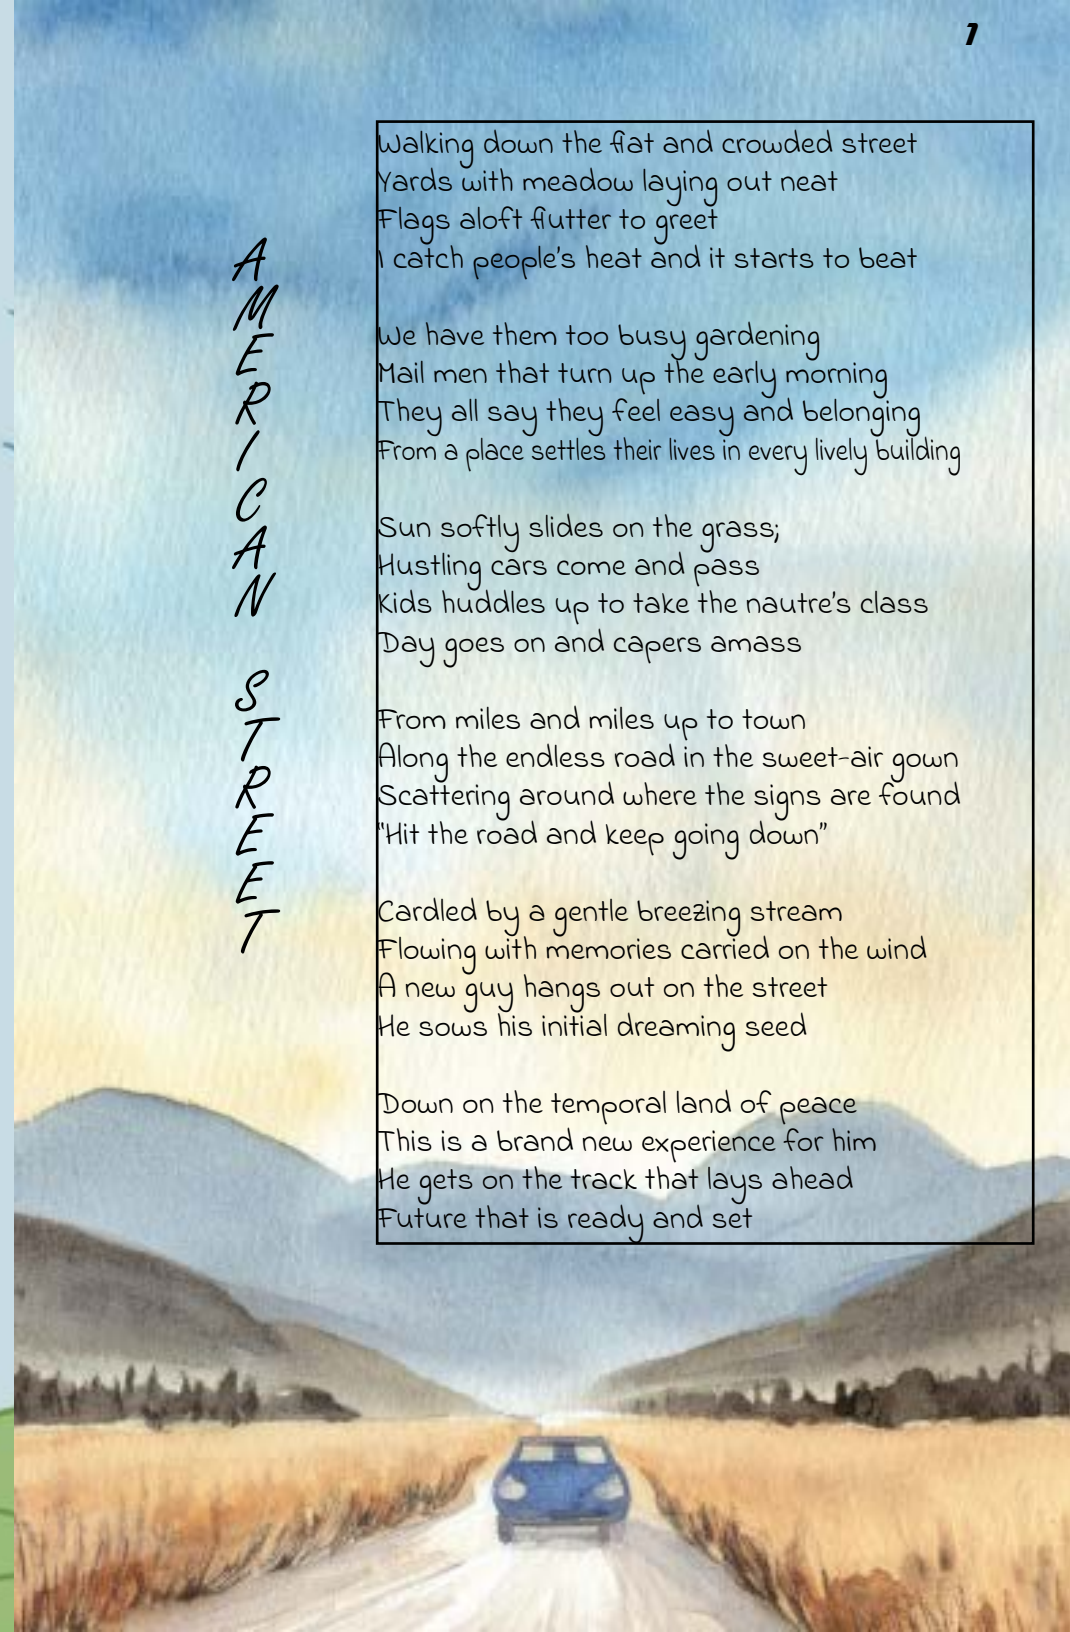 1
AMERICAN STREET
Walking down the flat and crowded street
Yards with meadow laying out neat
Flags aloft flutter to greet
I catch people's heat and it starts to beat
We have them too busy gardening
Mail men that turn up the early morning
They all say they feel easy and belonging
From a place settles their lives in every lively building
Sun softly slides on the grass;
Hustling cars come and pass
Kids huddles up to take the nautre's class
Day goes on and capers amass
From miles and miles up to town
Along the endless road in the sweet-air gown
Scattering around where the signs are found
"Hit the road and keep going down"
Cardled by a gentle breezing stream
Flowing with memories carried on the wind
A new guy hangs out on the street
He sows his initial dreaming seed
Down on the temporal land of peace
This is a brand new experience for him
He gets on the track that lays ahead
Future that is ready and set